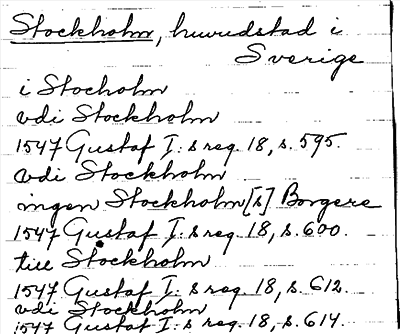 Stockholm, huvudstad i
Sverige
i Stocholm
vdi Stockholm
1547 Gustaf I:s reg. 18, s. 595.
vdi Stockholm
ingen Stockholm[s] Borgere
1547 Gustaf I:s reg. 18, s. 600.
till Stockholm
1547 Gustaf I:s reg. 18, s. 612.
vdi Stockholm
1547 Gustaf I:s reg. 18, s. 614.